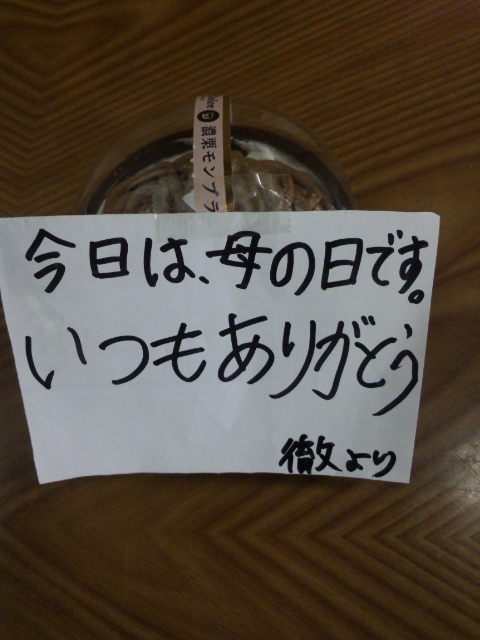 濃栗モンブラ
今日は、母の日です。
いつもありがとう
徹より